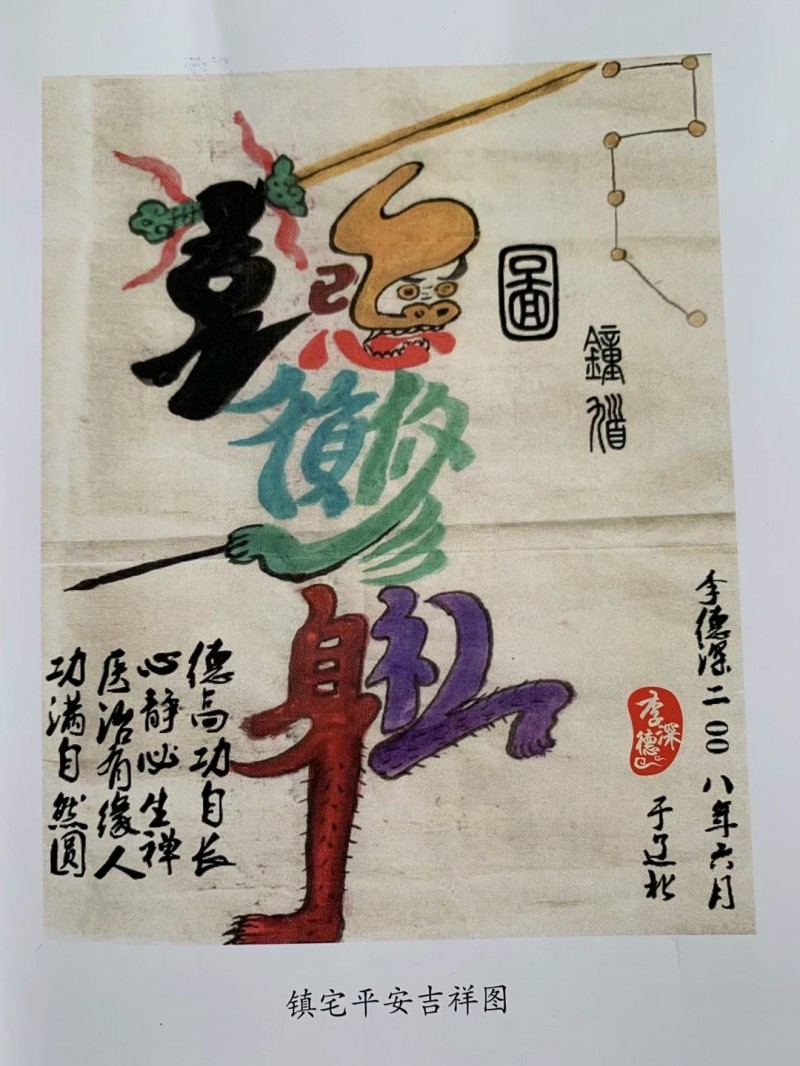 己
心
修
身礼
圖
鐘馗
李德深二〇〇八年六月
于辽北
李德深
德高功自长
心静必生禅
医治有缘人
功满自然圆
镇宅平安吉祥图